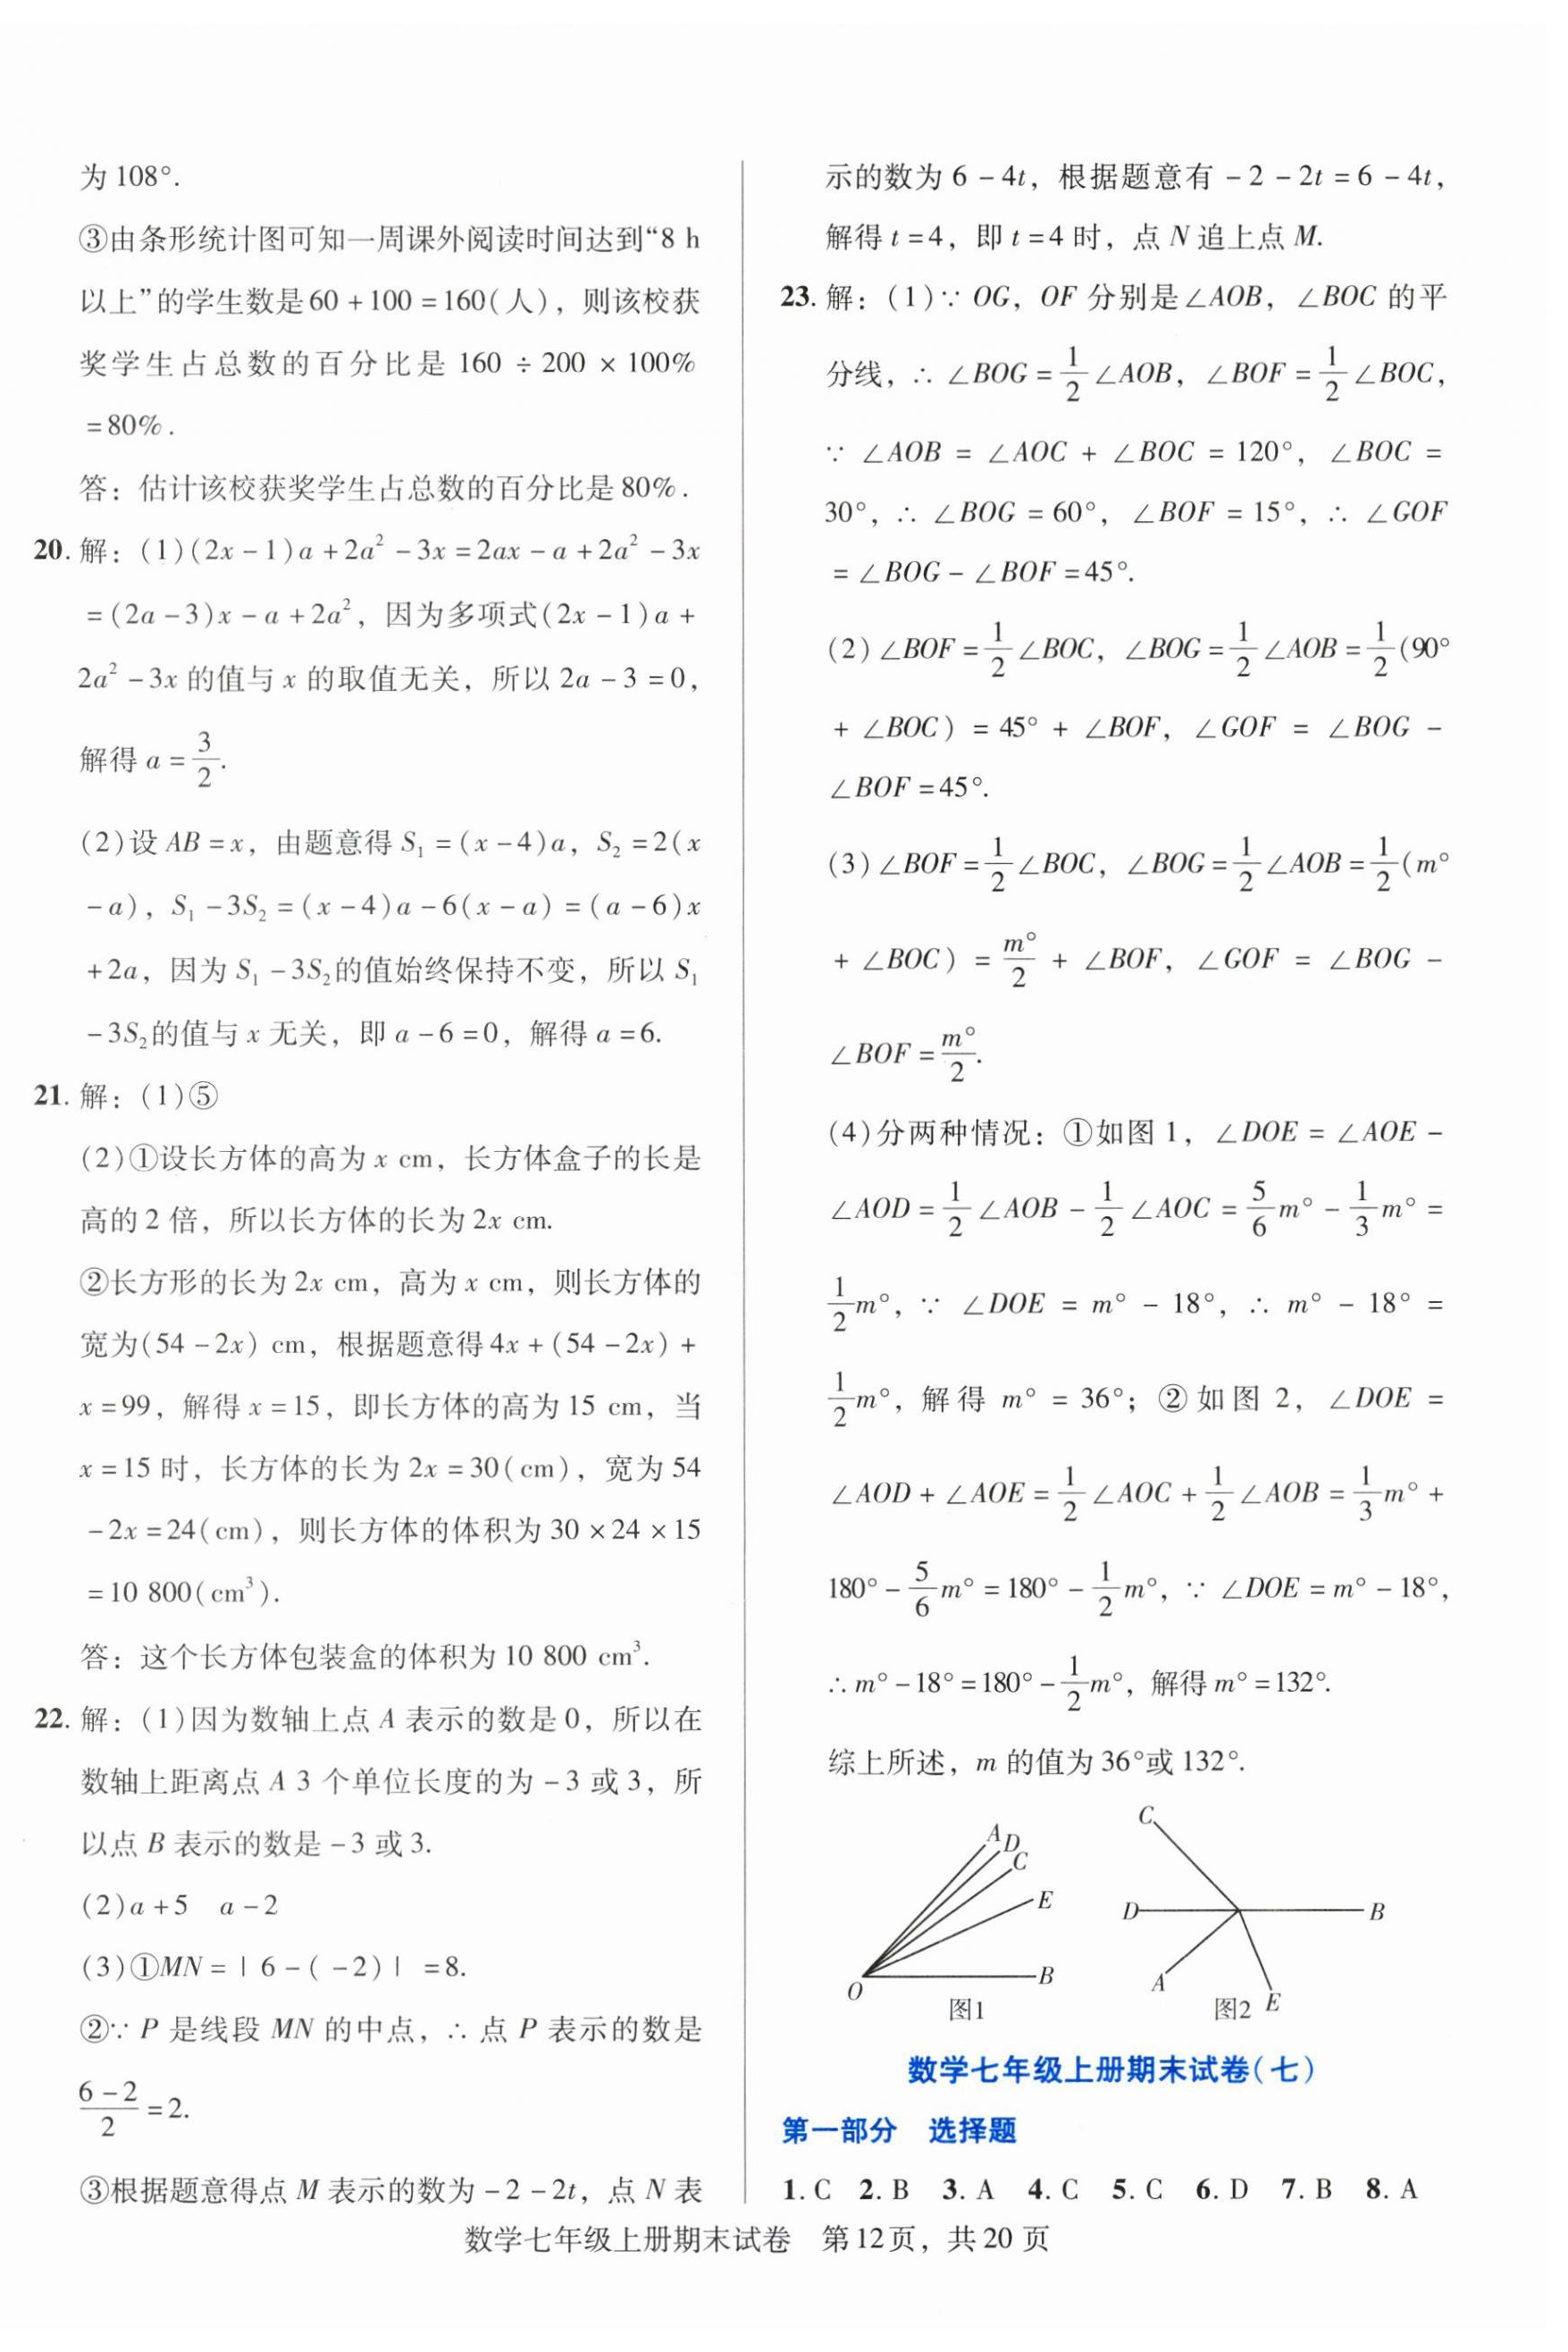 为 108°.
③由条形统计图可知一周课外阅读时间达到“8 h
以上”的学生数是 60 + 100 = 160(人)，则该校获
奖学生占总数的百分比是 160 ÷ 200 × 100%
= 80%.
答：估计该校获奖学生占总数的百分比是 80%.
20. 解：(1)(2x - 1)a + 2a² - 3x = 2ax - a + 2a² - 3x
= (2a - 3)x - a + 2a²，因为多项式(2x - 1)a +
2a² - 3x 的值与 x 的取值无关，所以 2a - 3 = 0，
解得 a = 3/2.
(2)设 AB = x，由题意得 S₁ = (x - 4)a，S₂ = 2(x
- a)，S₁ - 3S₂ = (x - 4)a - 6(x - a) = (a - 6)x
+ 2a，因为 S₁ - 3S₂的值始终保持不变，所以 S₁
- 3S₂的值与 x 无关，即 a - 6 = 0，解得 a = 6.
21. 解：(1)⑤
(2)①设长方体的高为 x cm，长方体盒子的长是
高的 2 倍，所以长方体的长为 2x cm.
②长方形的长为 2x cm，高为 x cm，则长方体的
宽为(54 - 2x) cm，根据题意得 4x + (54 - 2x) +
x = 99，解得 x = 15，即长方体的高为 15 cm，当
x = 15 时，长方体的长为 2x = 30(cm)，宽为 54
- 2x = 24(cm)，则长方体的体积为 30 × 24 × 15
= 10 800(cm³).
答：这个长方体包装盒的体积为 10 800 cm³.
22. 解：(1)因为数轴上点 A 表示的数是 0，所以在
数轴上距离点 A 3 个单位长度的为 - 3 或 3，所
以点 B 表示的数是 - 3 或 3.
(2)a + 5 a - 2
(3)①MN = | 6 - ( - 2) | = 8.
②∵ P 是线段 MN 的中点，∴ 点 P 表示的数是
(6 - 2)/2 = 2.
③根据题意得点 M 表示的数为 - 2 - 2t，点 N 表
示的数为 6 - 4t，根据题意有 - 2 - 2t = 6 - 4t，
解得 t = 4，即 t = 4 时，点 N 追上点 M.
23. 解：(1)∵ OG，OF 分别是∠AOB，∠BOC 的平
分线，∴ ∠BOG = 1/2 ∠AOB，∠BOF = 1/2 ∠BOC，
∵ ∠AOB = ∠AOC + ∠BOC = 120°，∠BOC =
30°，∴ ∠BOG = 60°，∠BOF = 15°，∴ ∠GOF
= ∠BOG - ∠BOF = 45°.
(2)∠BOF = 1/2 ∠BOC，∠BOG = 1/2 ∠AOB = 1/2 (90°
+ ∠BOC) = 45° + ∠BOF，∠GOF = ∠BOG -
∠BOF = 45°.
(3)∠BOF = 1/2 ∠BOC，∠BOG = 1/2 ∠AOB = 1/2 (m°
+ ∠BOC) = m°/2 + ∠BOF，∠GOF = ∠BOG -
∠BOF = m°/2.
(4)分两种情况：①如图 1，∠DOE = ∠AOE -
∠AOD = 1/2 ∠AOB - 1/2 ∠AOC = 5/6 m° - 1/3 m° =
1/2 m°，∵ ∠DOE = m° - 18°，∴ m° - 18° =
1/2 m°，解得 m° = 36°；②如图 2，∠DOE =
∠AOD + ∠AOE = 1/2 ∠AOC + 1/2 ∠AOB = 1/3 m° +
180° - 5/6 m° = 180° - 1/2 m°，∵ ∠DOE = m° - 18°，
∴ m° - 18° = 180° - 1/2 m°，解得 m° = 132°.
综上所述，m 的值为 36°或 132°.
A D C E B O 图1
C D B A E 图2
数学七年级上册期末试卷(七)
第一部分 选择题
1. C 2. B 3. A 4. C 5. C 6. D 7. B 8. A
数学七年级上册期末试卷 第 12 页，共 20 页